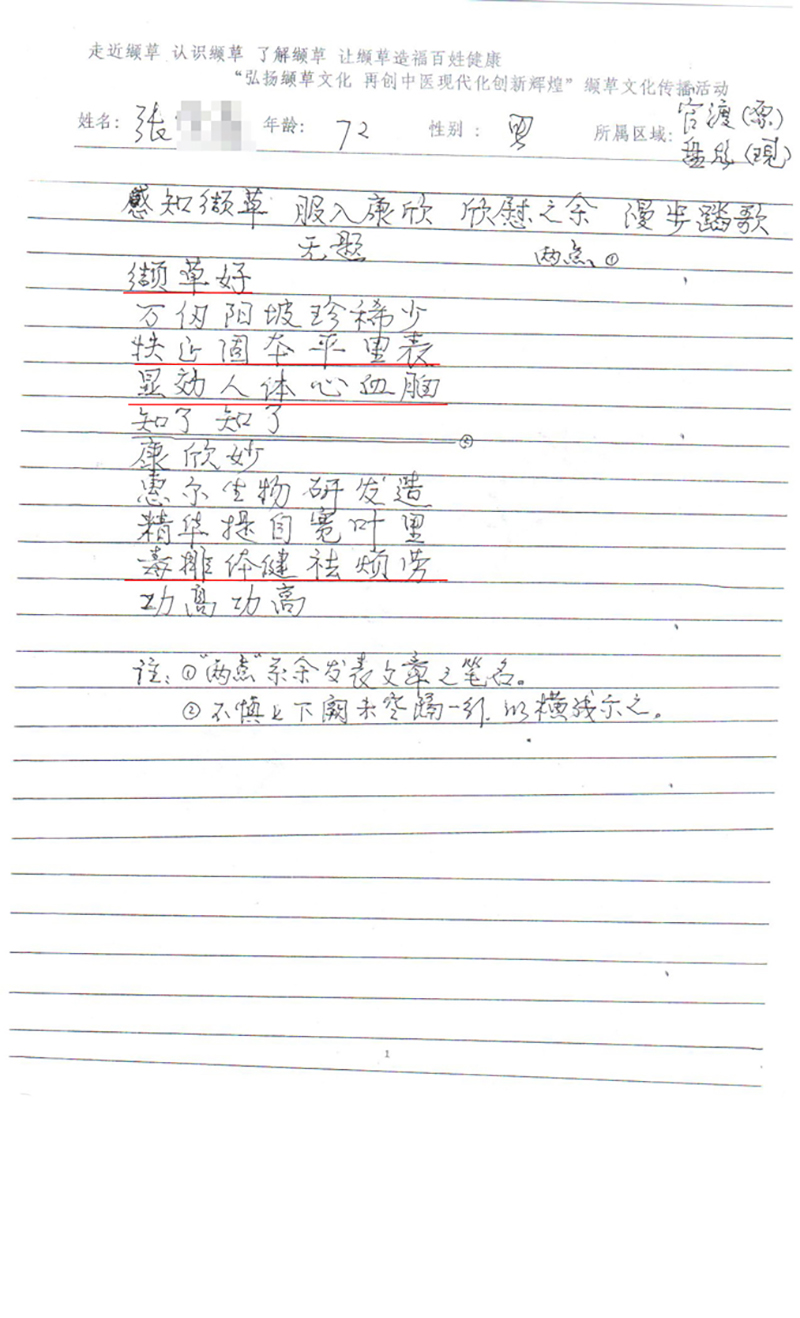 走近缬草 认识缬草 了解缬草 让缬草造福百姓健康
“弘扬缬草文化 再创中医现代化创新辉煌”缬草文化传播活动
姓名: 张 年龄: 72 性别: 男 所属区域: 官渡(原)
盘龙(现)
感知缬草 服入康欣 欣慰之余 漫步踏歌
无题 两点①
缬草好
万仞阳坡珍稀少
扶正固本平里表
显效人体心血脑
知了 知了
②
康欣妙
惠尔生物研发造
精华提自宽叶里
毒排体健祛烦劳
功高功高
注:①“两点”系余发表文章之笔名。
②不慎上下阙未空隔一行,以横线示之。
1